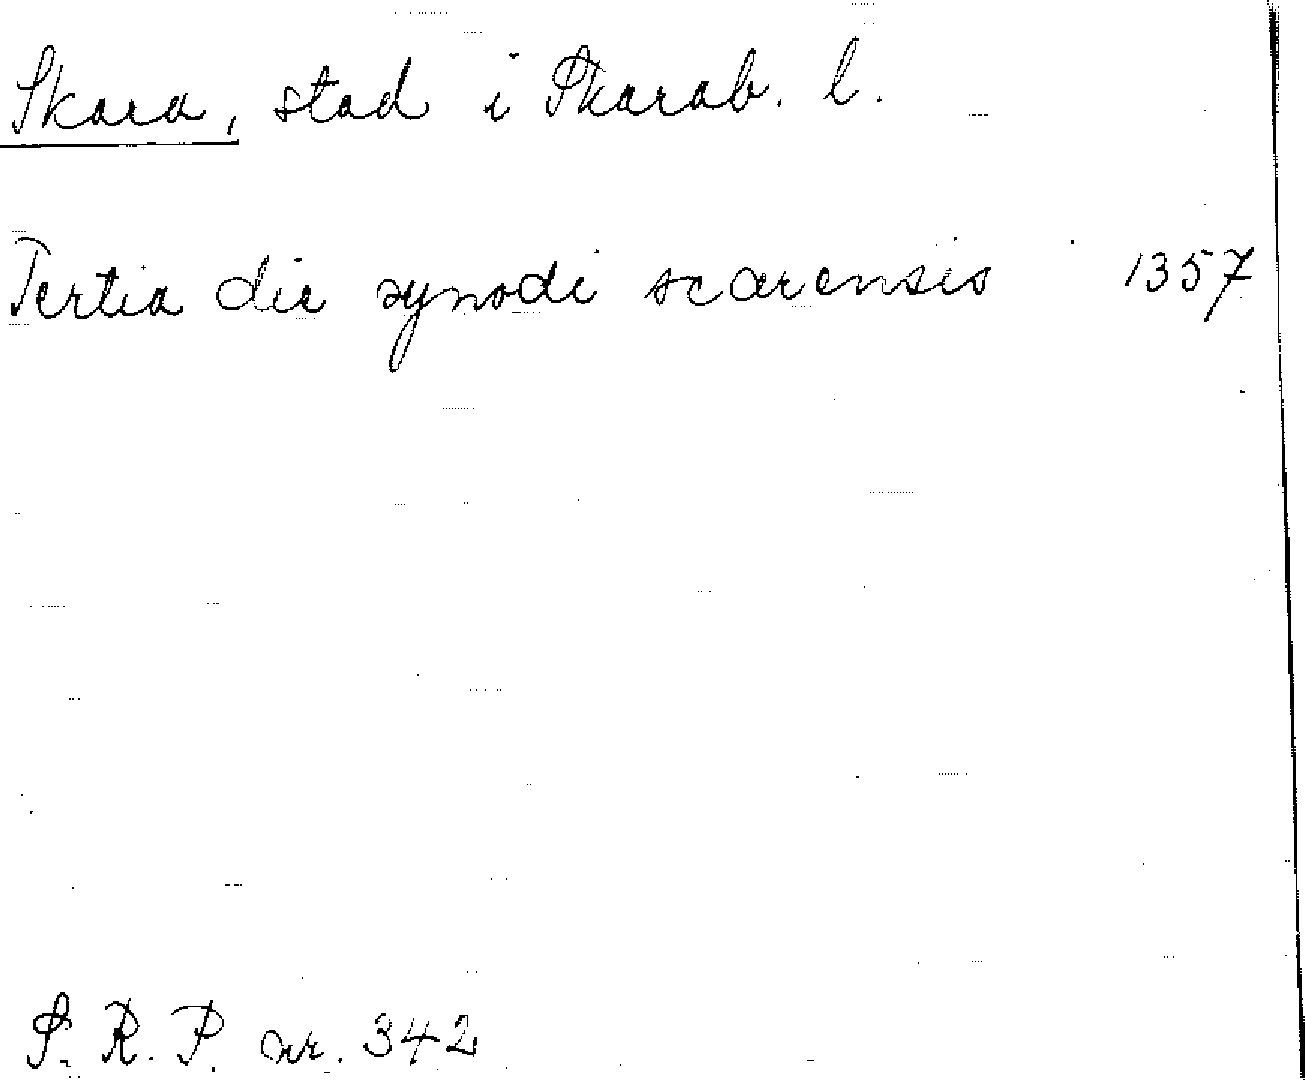 Skara, stad i Skarab. l.
Tertia die synodi scarensis 1357
S. R. P. nr. 342